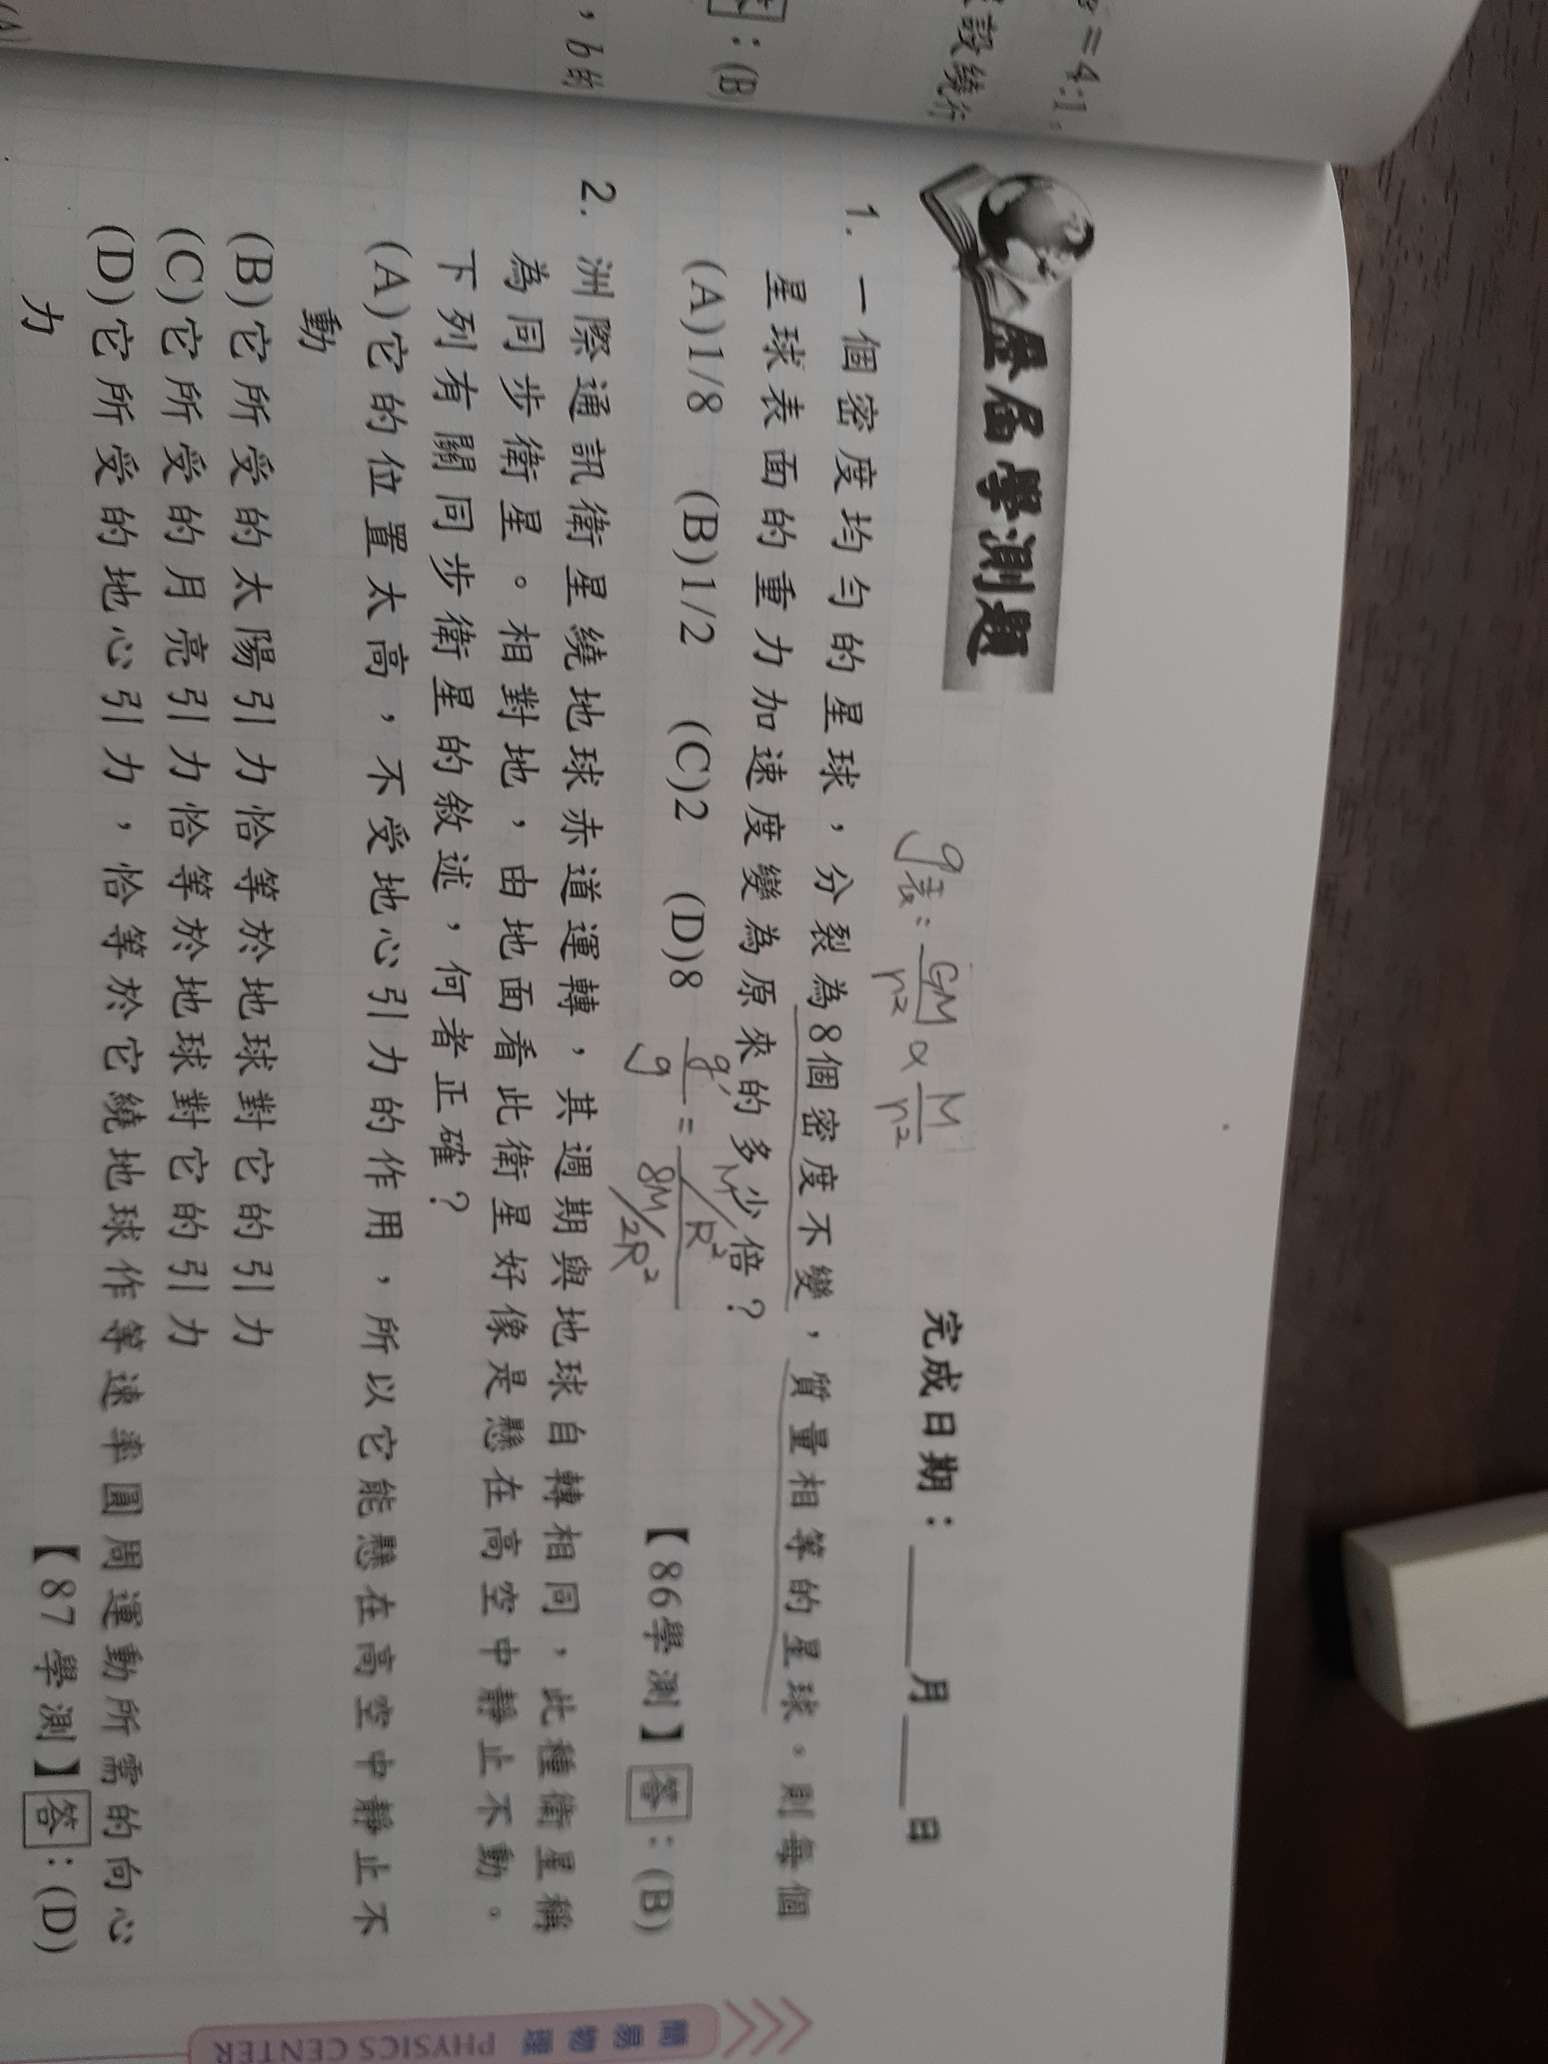 =4:1,
設繞行
:(B)
,b的
歷屆學測題
完成日期：____月___日
g表:GM/r² ∝ M/r²
1. 一個密度均勻的星球，分裂為8個密度不變，質量相等的星球。則每個
星球表面的重力加速度變為原來的多少倍？
(A)1/8 (B)1/2 (C)2 (D)8
【86學測】答：(B)
g'/g = M/R² / 8M/2R²
2. 洲際通訊衛星繞地球赤道運轉，其週期與地球自轉相同，此種衛星稱
為同步衛星。相對地，由地面看此衛星好像是懸在高空中靜止不動。
下列有關同步衛星的敘述，何者正確？
(A)它的位置太高，不受地心引力的作用，所以它能懸在高空中靜止不
動
(B)它所受的太陽引力恰等於地球對它的引力
(C)它所受的月亮引力恰等於地球對它的引力
(D)它所受的地心引力，恰等於它繞地球作等速率圓周運動所需的向心
力
【87學測】答：(D)
簡易物理 PHYSICS CENTER